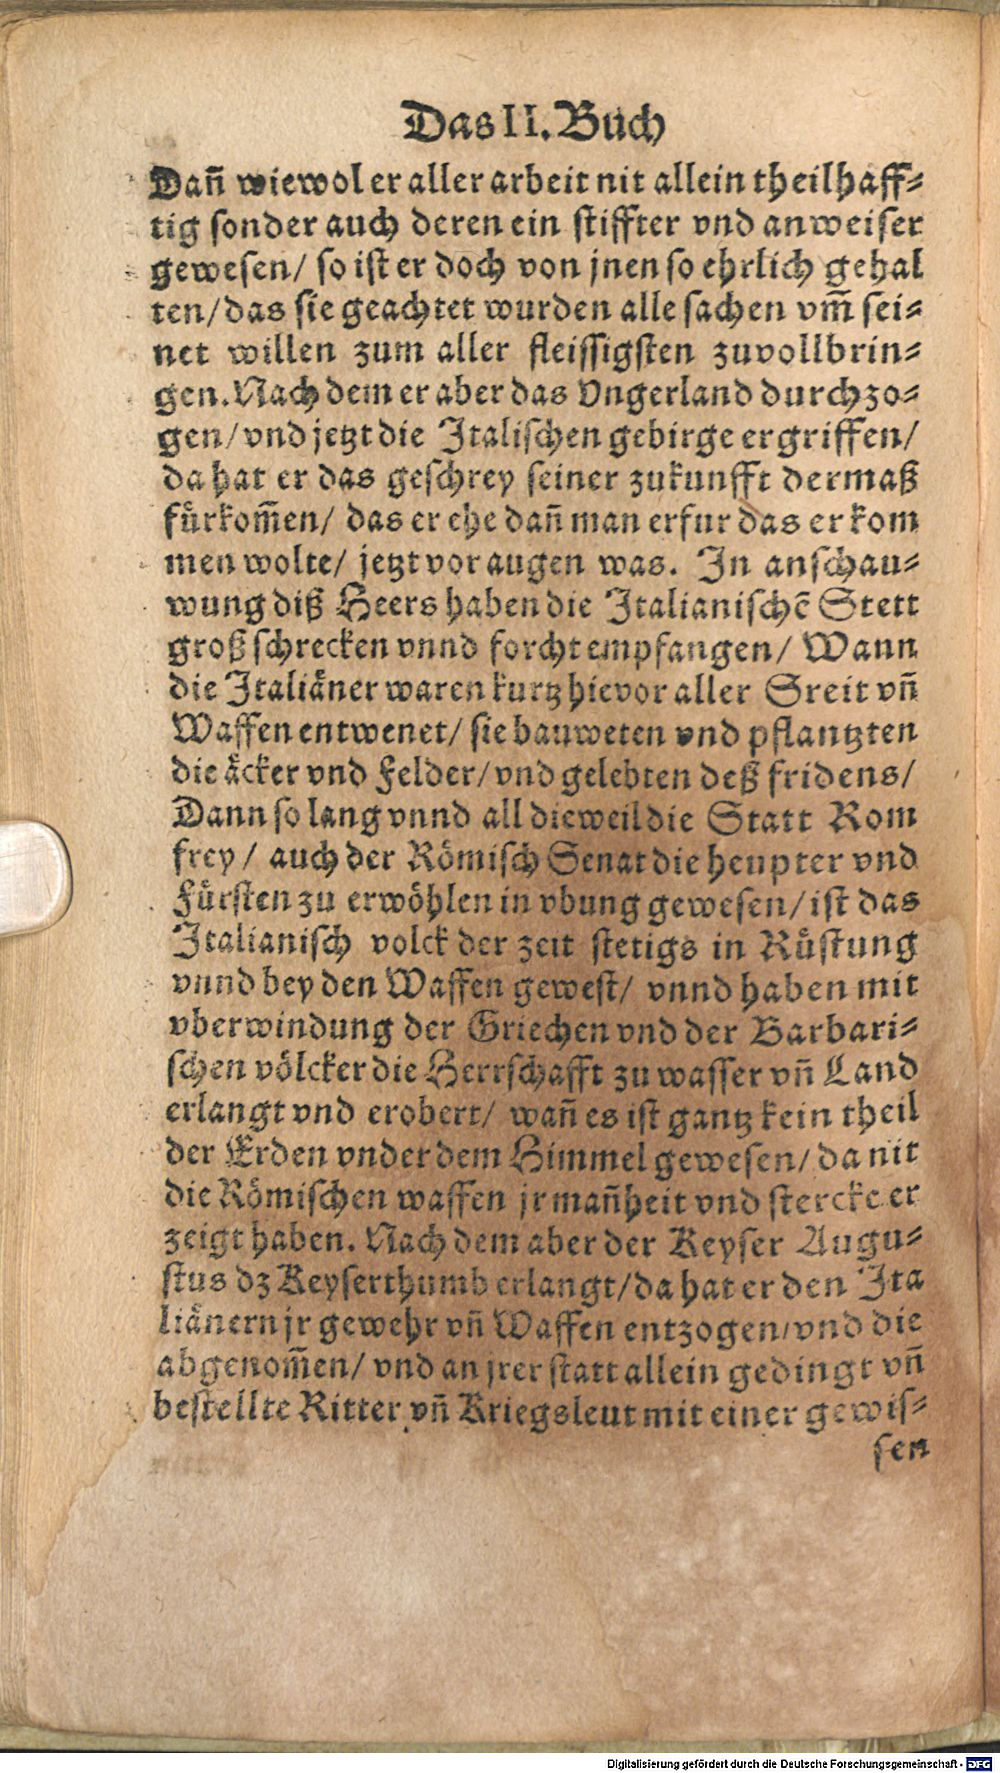 Das II. Buch
Dañ wiewol er aller arbeit nit allein theilhaff-
tig sonder auch deren ein stiffter vnd anweiser
gewesen/ so ist er doch von jnen so ehrlich gehal
ten/ das sie geachtet wurden alle sachen vm̃ sei-
net willen zum aller fleissigsten zuvollbrin-
gen. Nach dem er aber das Vngerland durchzo-
gen/ vnd jetzt die Italischen gebirge ergriffen/
da hat er das geschrey seiner zukunfft dermaß
fürkom̃en/ das er ehe dañ man erfur das er kom
men wolte/ jetzt vor augen was. In anschau-
wung diß Heers haben die Italianischẽ Stett
groß schrecken vnnd forcht empfangen/ Wann
die Italiäner waren kurtz hievor aller Streit vñ
Waffen entwenet/ sie bauweten vnd pflantzten
die äcker vnd Felder/ vnd gelebten deß fridens/
Dann so lang vnnd all dieweil die Statt Rom
frey/ auch der Römisch Senat die heupter vnd
Fürsten zu erwöhlen in vbung gewesen/ ist das
Italianisch volck der zeit stetigs in Rüstung
vnnd bey den Waffen gewest/ vnnd haben mit
vberwindung der Griechen vnd der Barbari-
schen völcker die Herrschafft zu wasser vñ Land
erlangt vnd erobert/ wañ es ist gantz kein theil
der Erden vnder dem Himmel gewesen/ da nit
die Römischen waffen jr mañheit vnd stercke er
zeigt haben. Nach dem aber der Keyser Augu-
stus dz Keyserthumb erlangt/ da hat er den Ita
liänern jr gewehr vñ Waffen entzogen/ vnd die
abgenom̃en/ vnd an jrer statt allein gedingt vñ
bestellte Ritter vñ Kriegsleut mit einer gewis-
sen
Digitalisierung gefördert durch die Deutsche Forschungsgemeinschaft - DFG